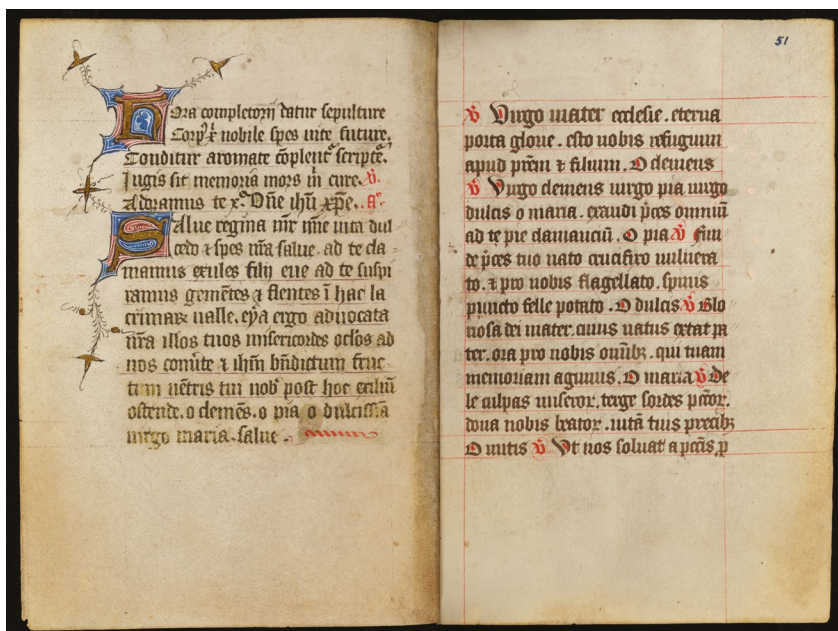 Hora completorij datur sepulture
Corpꝰ x̄ nobile spes uite future.
Conditur aromate cōplentᷓ scriptᷓe.
Jugis sit memoria mors m̄ cure. ℣.
Adoramus te xᷓ. Dn̄e ih̄u xp̄e. Aᷓ.
Salue regina mīe uita dul
cedo ⁊ spes nr̄a salue. ad te cla-
mamus exules filij eue ad te suspi
ramus gemētes ⁊ flentes ī hac la
crimaꝝ ualle. eya ergo aduocata
nr̄a illos tuos misericordes oc̄los ad
nos cōuīte ⁊ ih̄m bn̄dictum fruc-
tum uētris tui nob̄ post hoc exiliū
ostende. o clemēs. o pia o dulcissīa
uirgo maria. salue.
51
℣ Virgo mater ecclesie. eterna
porta glorie. esto nobis refugium
apud pr̄em ⁊ filium. O clemens
℣ Virgo clemens uirgo pia uirgo
dulcis o maria. exaudi p̄ces omniū
ad te pie clamanciū. O pia ℣ Fun
de p̄ces tuo nato crucifixo uulnera
to. ⁊ pro nobis flagellato. spinis
puncto felle potato. O dulcis ℣ Glo
riosa dei mater. cuius natus extat pa
ter. ora pro nobis om̄ibꝫ. qui tuam
memoriam agimus. O maria ℣ De
le culpas miseroꝝ. terge sordes pc̄coꝝ.
dona nobis beatoꝝ. uitā tuis precibꝫ
O mitis ℣ Vt nos soluat a pcc̄is. p